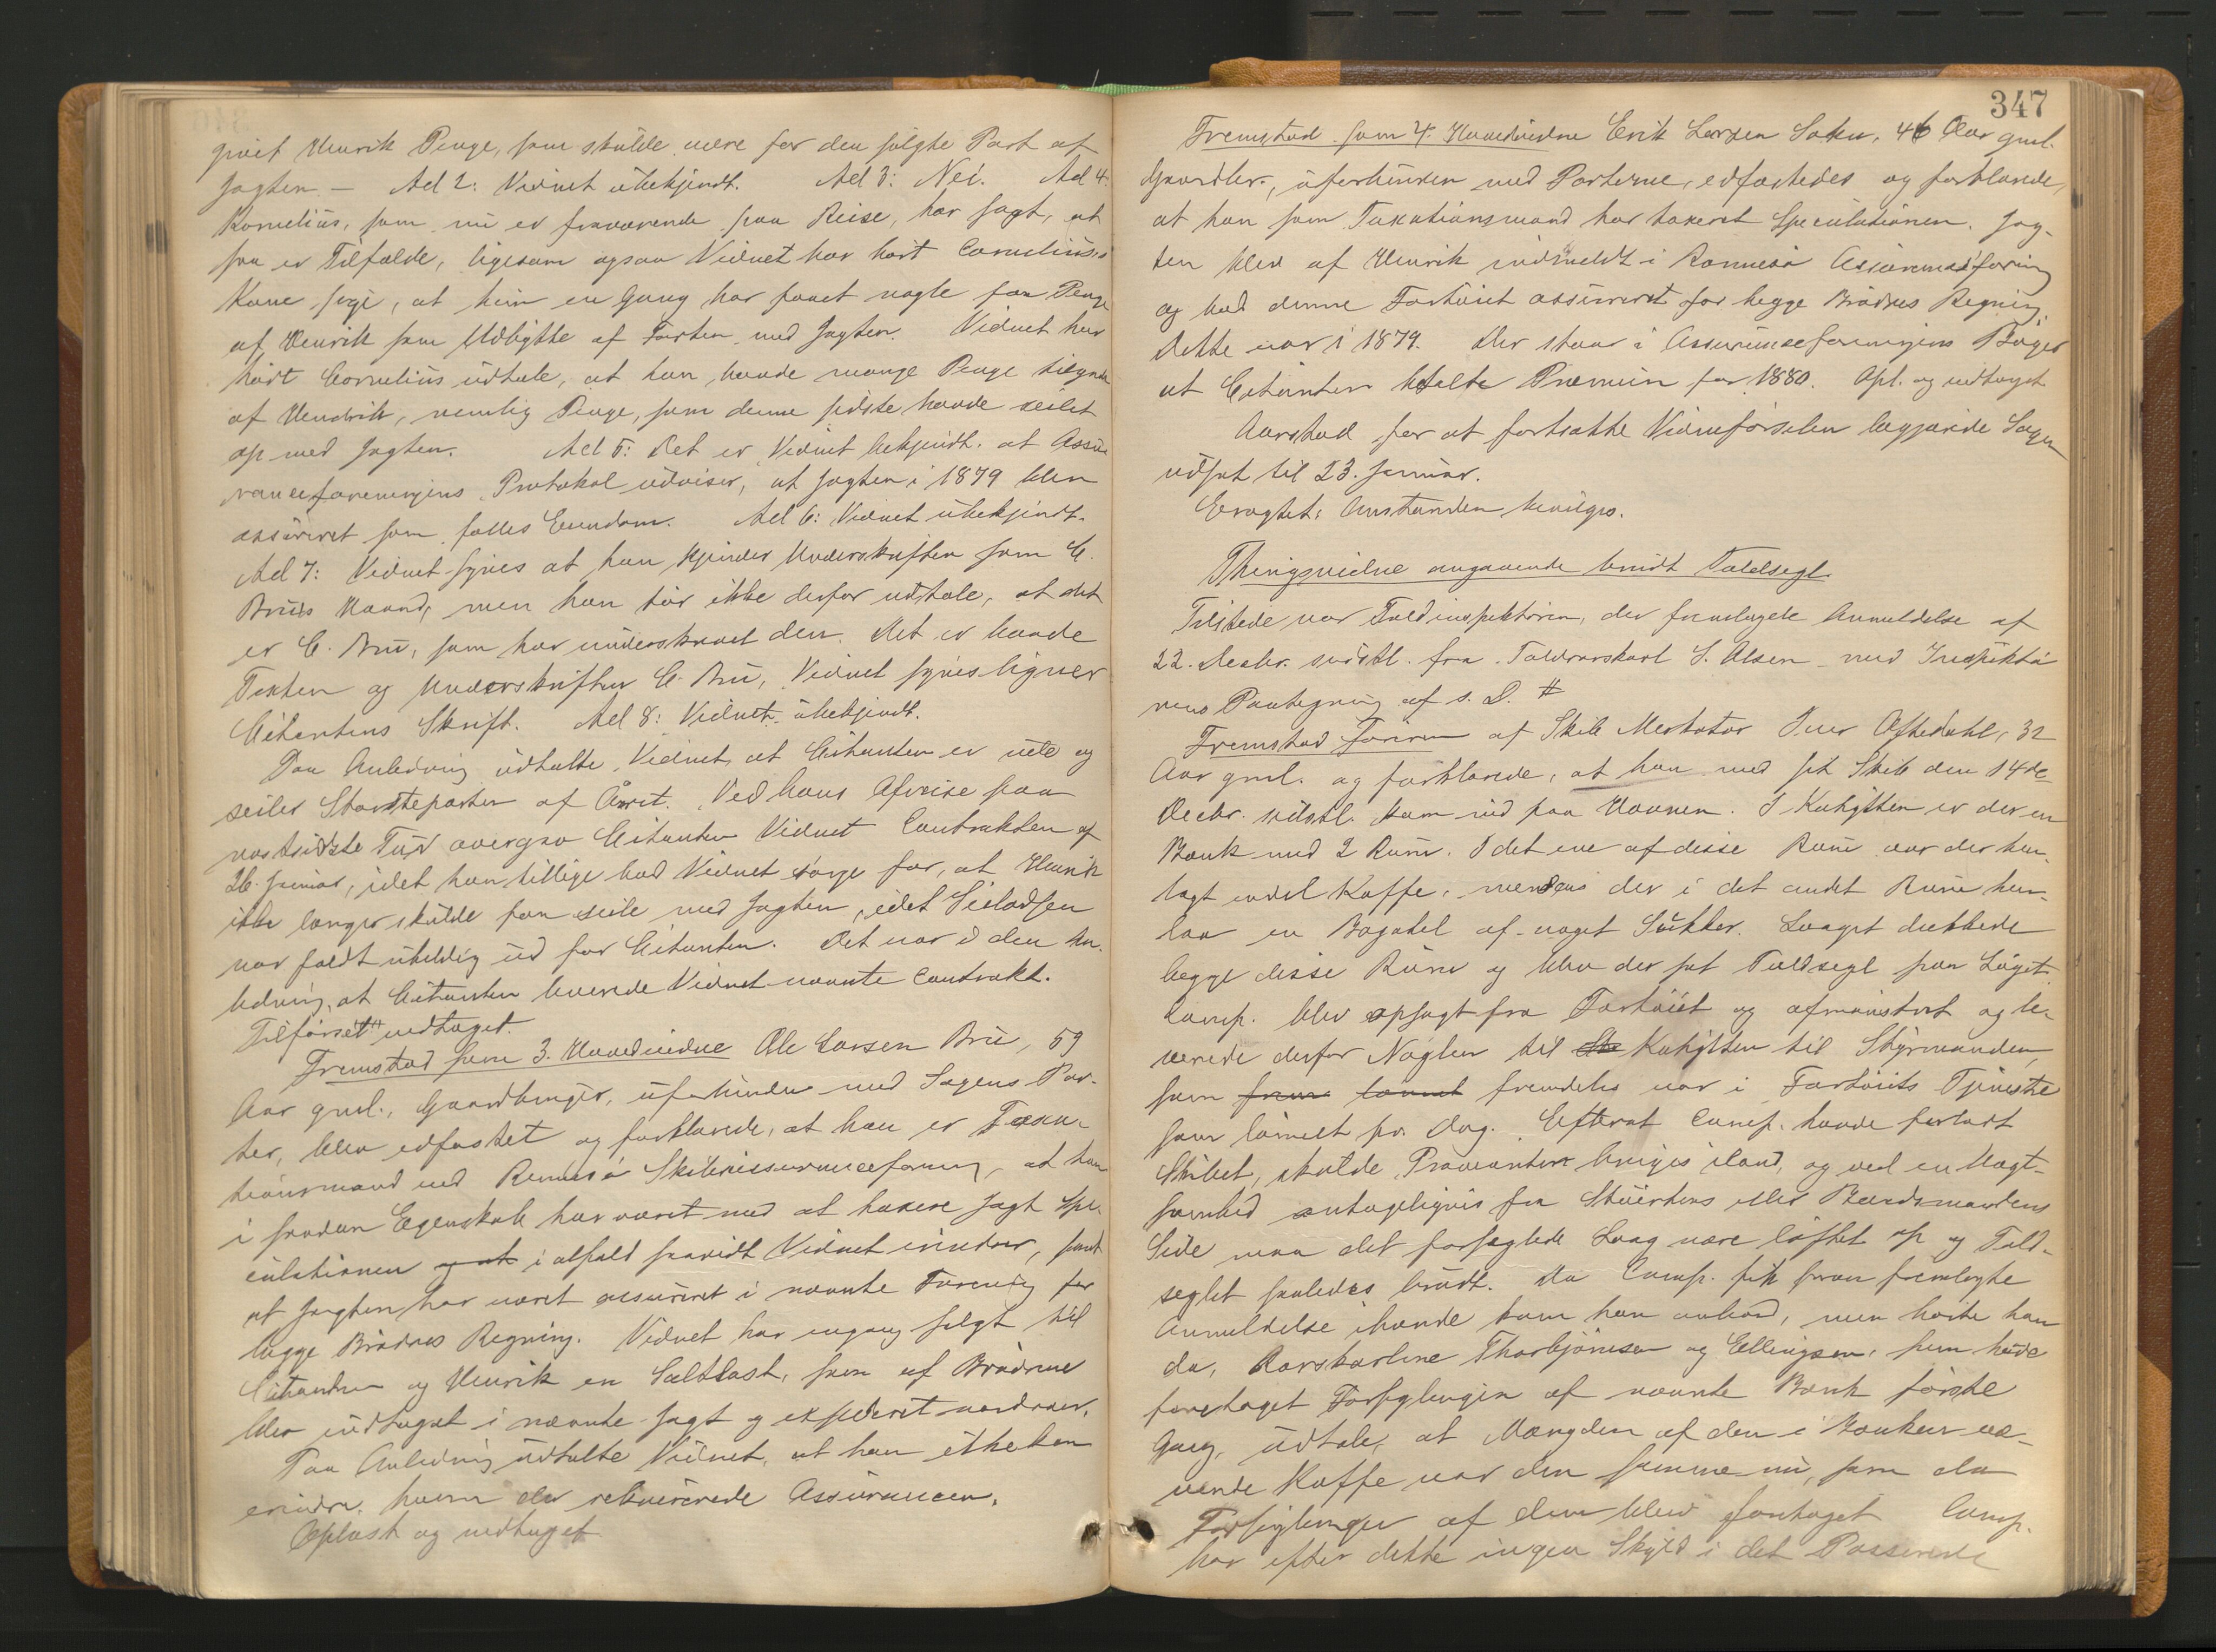 givet Henrik Penge, som skulde være for den solgte Part af
Jagten. — Ad 2: Vidnet ubekjendt. Ad 3: Nei. Ad 4:
Kornelius, som nu er fraværende paa Reise, har sagt, at
saa er Tilfælde, ligesom ogsaa Vidnet har hørt Cornelius's
Kone sige, at hun en Gang har faaet nogle faa Penge
af Henrik som Udbytte af Farten med Jagten. Vidnet har
hørt Cornelius udtale, at han havde mange Penge tilgode
af Hendrik, nemlig Penge, som denne sidste havde seilet
op med Jagten. Ad 5: Det er Vidnet bekjendt at Assu-
ranceforeningens Protokol udviser, at Jagten i 1879 blev
assureret som fælles Eiendom. Ad 6: Vidnet ubekjendt.
Ad 7: Vidnet synes at han kjender Underskriften som C.
Bru's Haand, men han tør ikke derfor udtale, at det
er C. Bru, som har underskrevet den. Det er baade
Texten og Underskriften C. Bru, Vidnet synes ligner
Citantens Skrift. Ad 8: Vidnet ubekjendt.
Paa Anledning udtalte Vidnet, at Citanten er ute og
seiler Størsteparten af Året. Ved hans Afreise paa
næstsidste Tur overgav Citanten Vidnet Contrakten af
26. Januar, idet han tillige bad Vidnet sørge for, at Henrik
ikke længer skulde faa seile med Jagten, idet Seiladsen
var faldt uheldig ud for Citanten. Det var i den An-
ledning, at Citanten leverede Vidnet nævnte Contrakt.
Tilførset vedtaget.
Fremstod som 3. Hovedvidne Ole Larsen Bru, 59
Aar gml., Gaardbruger, uforbunden med Sagens Par-
ter, blev edfæstet og forklarede, at han er Taxa-
tionsmand ved Rennesø Skibsassuranceforening, at han
i saadan Egenskab har været med at taxere Jagt Spe-
culationen og at i alfald saavidt Vidnet erindrer, samt
at Jagten har været assureret i nævnte Forening for
begge Brødres Regning. Vidnet har engang solgt til
Citanten og Henrik en Saltlast, som af Brødrene
blev indtaget i nævnte Jagt og expederet nordover.
Paa Anledning udtalte Vidnet, at han ikke kan
erindre, hvem der rekvirerede Assurancen.
Oplæst og vedtaget
347
Fremstod som 4. Hovedvidne Erik Larsen Sokn, 46 Aar gml.
Gaardbr., uforbunden med Parterne, edfæstedes og forklarede,
at han som Taxationsmand har taxeret Speculationen. Jag-
ten blev af Henrik indmeldt i Rennesø Assuranceforening
og bad denne Fartøiet assureret for begge Brødres Regning.
Dette var i 1879. Der staar i Assuranceforeningens Bøger
at Citanten betalte Præmien for 1880. Opl. og vedtaget
Aarstad for at fortsætte Vidneførselen begjærede Sagen
udsat til 23. Januar.
Eragtet: Anstanden bevilges.
Thingsvidne angaaende brudt Toldsegl.
Tilstede var Toldinspektøren, der fremlagde Anmeldelse af
22. Decbr. sidstl. fra Toldrorskarl S. Olsen med Inspektø-
rens Paategning af s. D. #
Fremstod Føreren af Skib Merkator Iver Aftedahl, 32
Aar gml. og forklarede, at han med sit Skib den 14de
Decbr. sidstl. kom ind paa Havnen. I Kahytten er der en
Bænk med 2 Rum. I det ene af disse Rum var der hen-
lagt endel Kaffe, mendens der i det andet Rum hen-
laa en Bagatel af noget Sukker. Laaget dækkede
begge disse Rum og blev der sat Toldsegl paa Låget.
Comp. blev opsagt fra Fartøiet og afmønstret og le-
verede derfor Nøglen til Kahytten til Styrmanden,
som fremdeles var i Fartøiets Tjeneste
som lønnet pr. Dag. Efterat Comp. havde forladt
Skibet, skulde Provianten bringes iland, og ved en Uagt-
somhed antageligvis fra Stuertens eller Baadsmandens
Side maa det forseglede Laag være løftet op og Told-
seglet saaledes brudt. Da Comp. fik saan fremlagte
Anmeldelse ihænde kom han ombord, men hørte han
da, Rorskarlene Thorbjørnsen og Ellingsen, som havde
foretaget Forseglingen af nævnte Bænk første
Gang, udtale, at Mængden af den i Bænken væ-
rende Kaffe var den samme nu, som da
Forseglingen af den blev foretaget Comp.
har efter dette ingen Skyld i det Passerede